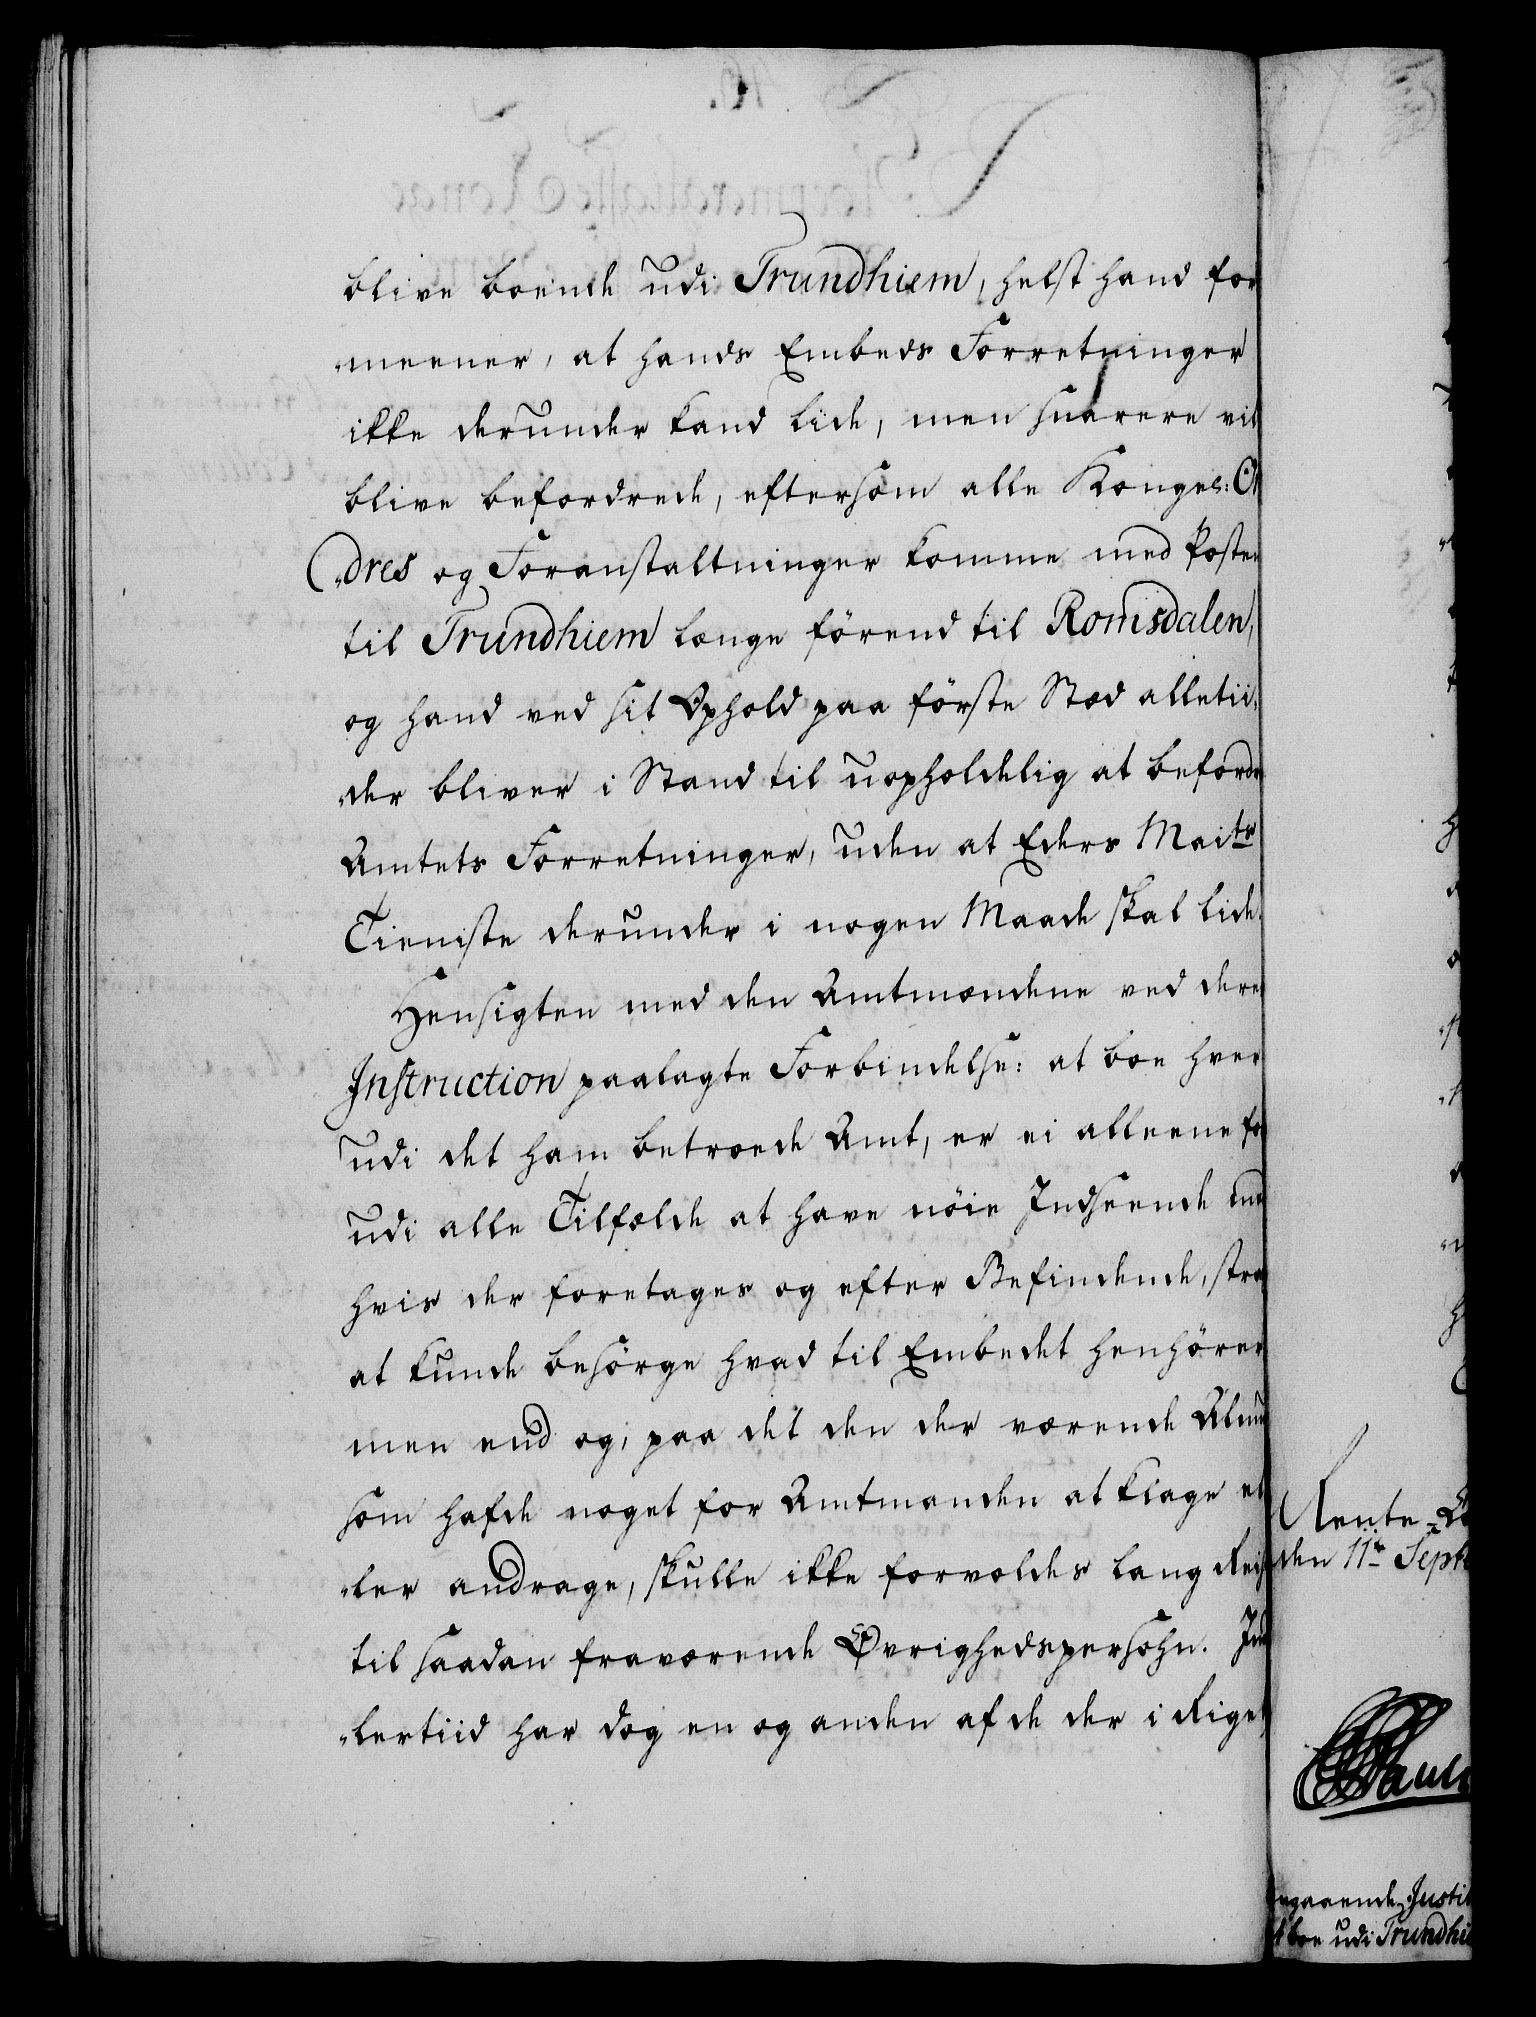 blive boende udi Trundhiem, helst hand for
meener, at hands Embeds Forretninger
ikke derunder kand lide, men snarere vil
blive befordrede, eftersom alle Kongel: Or
dres og Foranstaltninger komme med Posten
til Trundhiem længe förend til Romsdalen,
og hand ved sit Ophold paa förste Stæd alletii,
der bliver i Stand til uopholdelig at befordre
Amtets Forretninger, uden at Eders Maits
Tieniste derunder i nogen Maade skal lide.
Hensigten med den Amtmændene ved deres
Instruction paalagte Forbindelse: at boe hver
udi det ham betroede Amt, er ei alleene for
udi alle Tilfælde at have nöie Indseende med
hvis der foretages og efter Befindende, strax
at kunde besörge hvad til Embedet henhörer
men end og, paa det den der værende Almu
som hafde noget for Amtmanden at klage el
ler andrage, skulle ikke forvoldes lang Reis
til saadan fraværende Øvrighedspersohn. Im
lertiid har dog en og anden af de der i Riget
Rente-
den 11te Sept
angaaende Justi
at boe udi Trundhie